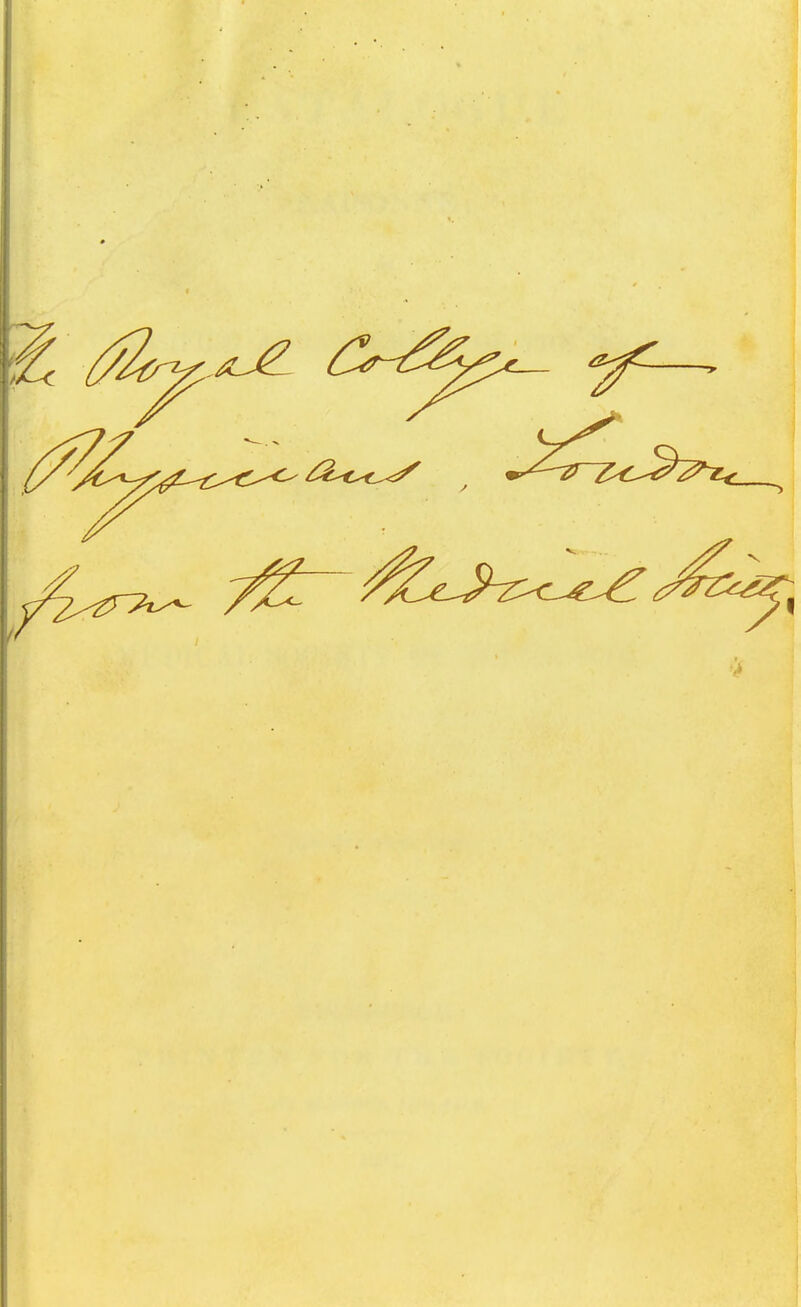 The Royal College of
Physicians, London
from the Medical Society